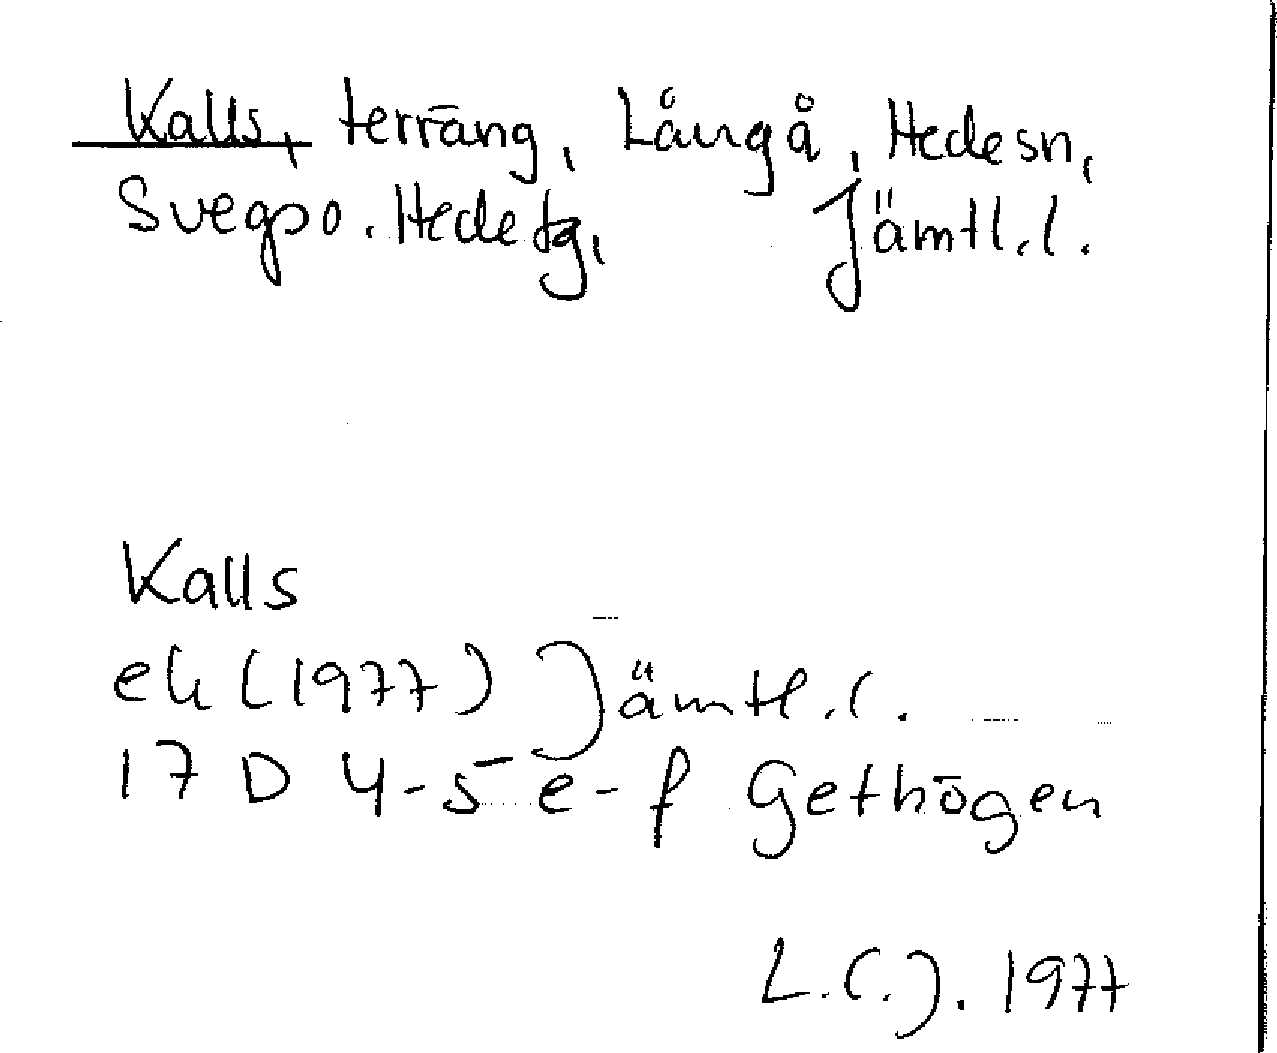 Kalls, terräng, Långå, Hedesn,
Svegpo. Hede tg, Jämtl.l.
Kalls
ek (1977) Jämtl.l.
17 D 4-5 e-f Gethögen
L.C.J. 1977